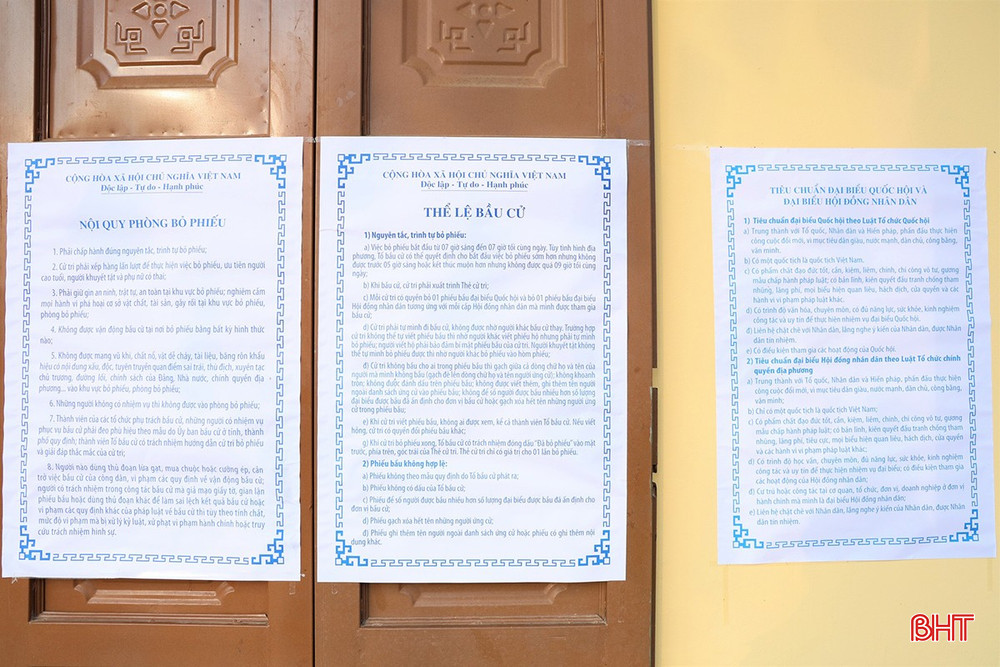 CỘNG HÒA XÃ HỘI CHỦ NGHĨA VIỆT NAM
Độc lập - Tự do - Hạnh phúc
NỘI QUY PHÒNG BỎ PHIẾU
1. Phải chấp hành đúng nguyên tắc, trình tự bỏ phiếu;
2. Cử tri phải xếp hàng lần lượt để thực hiện việc bỏ phiếu, ưu tiên người
cao tuổi, người khuyết tật và phụ nữ có thai;
3. Phải giữ gìn an ninh, trật tự, an toàn tại khu vực bỏ phiếu; nghiêm cấm
mọi hành vi phá hoại cơ sở vật chất, tài sản, gây rối tại khu vực bỏ phiếu,
phòng bỏ phiếu;
4. Không được vận động bầu cử tại nơi bỏ phiếu bằng bất kỳ hình thức
nào;
5. Không được mang vũ khí, chất nổ, vật dễ cháy, tài liệu, băng rôn khẩu
hiệu có nội dung xấu, độc, tuyên truyền quan điểm sai trái, thù địch, xuyên tạc
chủ trương, đường lối, chính sách của Đảng, Nhà nước, chính quyền địa
phương... vào khu vực bỏ phiếu, phòng bỏ phiếu;
6. Những người không có nhiệm vụ thì không được vào phòng bỏ phiếu;
7. Thành viên của các tổ chức phụ trách bầu cử, những người có nhiệm vụ
phục vụ bầu cử phải đeo phù hiệu theo mẫu do Ủy ban bầu cử ở tỉnh, thành
phố quy định; thành viên Tổ bầu cử có trách nhiệm hướng dẫn cử tri bỏ phiếu
và giải đáp thắc mắc của cử tri;
8. Người nào dùng thủ đoạn lừa gạt, mua chuộc hoặc cưỡng ép, cản
trở việc bầu cử của công dân, vi phạm các quy định về vận động bầu cử;
người có trách nhiệm trong công tác bầu cử mà giả mạo giấy tờ, gian lận
phiếu bầu hoặc dùng thủ đoạn khác để làm sai lệch kết quả bầu cử hoặc
vi phạm các quy định khác của pháp luật về bầu cử thì tùy theo tính chất,
mức độ vi phạm mà bị xử lý kỷ luật, xử phạt vi phạm hành chính hoặc truy
cứu trách nhiệm hình sự.
CỘNG HÒA XÃ HỘI CHỦ NGHĨA VIỆT NAM
Độc lập - Tự do - Hạnh phúc
THỂ LỆ BẦU CỬ
1) Nguyên tắc, trình tự bỏ phiếu:
a) Việc bỏ phiếu bắt đầu từ 07 giờ sáng đến 07 giờ tối cùng ngày. Tùy tình hình địa
phương, Tổ bầu cử có thể quyết định cho bắt đầu việc bỏ phiếu sớm hơn nhưng không
được trước 05 giờ sáng hoặc kết thúc muộn hơn nhưng không được quá 09 giờ tối cùng
ngày;
b) Khi bầu cử, cử tri phải xuất trình Thẻ cử tri;
c) Mỗi cử tri có quyền bỏ 01 phiếu bầu đại biểu Quốc hội và bỏ 01 phiếu bầu đại biểu
Hội đồng nhân dân tương ứng với mỗi cấp Hội đồng nhân dân mà mình được tham gia
bầu cử;
d) Cử tri phải tự mình đi bầu cử, không được nhờ người khác bầu cử thay. Trường hợp
cử tri không thể tự viết phiếu bầu thì nhờ người khác viết phiếu hộ nhưng phải tự mình
bỏ phiếu; người viết hộ phải bảo đảm bí mật phiếu bầu của cử tri. Người khuyết tật không
thể tự mình bỏ phiếu được thì nhờ người khác bỏ phiếu vào hòm phiếu;
đ) Cử tri không bầu cho ai trong phiếu bầu thì gạch giữa cả dòng chữ họ và tên của
người mà mình không bầu (gạch đè lên dòng chữ họ và tên người ứng cử); không khoanh
tròn; không được đánh dấu trên phiếu bầu; không được viết thêm, ghi thêm tên người
ngoài danh sách ứng cử vào phiếu bầu; không để số người được bầu nhiều hơn số lượng
đại biểu được bầu đã ấn định cho đơn vị bầu cử hoặc gạch xóa hết tên những người ứng
cử trong phiếu bầu;
e) Khi cử tri viết phiếu bầu, không ai được xem, kể cả thành viên Tổ bầu cử. Nếu viết
hỏng, cử tri có quyền đổi phiếu bầu khác;
g) Khi cử tri bỏ phiếu xong, Tổ bầu cử có trách nhiệm đóng dấu "Đã bỏ phiếu" vào mặt
trước, phía trên, góc trái của Thẻ cử tri. Thẻ cử tri chỉ có giá trị cho 01 lần bỏ phiếu.
2) Phiếu bầu không hợp lệ:
a) Phiếu không theo mẫu quy định do Tổ bầu cử phát ra;
b) Phiếu không có dấu của Tổ bầu cử;
c) Phiếu để số người được bầu nhiều hơn số lượng đại biểu được bầu đã ấn định cho
đơn vị bầu cử;
d) Phiếu gạch xóa hết tên những người ứng cử;
đ) Phiếu ghi thêm tên người ngoài danh sách ứng cử hoặc phiếu có ghi thêm nội
dung khác.
TIÊU CHUẨN ĐẠI BIỂU QUỐC HỘI VÀ
ĐẠI BIỂU HỘI ĐỒNG NHÂN DÂN
1) Tiêu chuẩn đại biểu Quốc hội theo Luật Tổ chức Quốc hội
a) Trung thành với Tổ quốc, Nhân dân và Hiến pháp, phấn đấu thực hiện
công cuộc đổi mới, vì mục tiêu dân giàu, nước mạnh, dân chủ, công bằng,
văn minh.
b) Có một quốc tịch là quốc tịch Việt Nam.
c) Có phẩm chất đạo đức tốt, cần, kiệm, liêm, chính, chí công vô tư, gương
mẫu chấp hành pháp luật; có bản lĩnh, kiên quyết đấu tranh chống tham
nhũng, lãng phí, mọi biểu hiện quan liêu, hách dịch, cửa quyền và các
hành vi vi phạm pháp luật khác.
d) Có trình độ văn hóa, chuyên môn, có đủ năng lực, sức khỏe, kinh nghiệm
công tác và uy tín để thực hiện nhiệm vụ đại biểu Quốc hội.
đ) Liên hệ chặt chẽ với Nhân dân, lắng nghe ý kiến của Nhân dân, được Nhân
dân tín nhiệm.
e) Có điều kiện tham gia các hoạt động của Quốc hội.
2) Tiêu chuẩn đại biểu Hội đồng nhân dân theo Luật Tổ chức chính
quyền địa phương
a) Trung thành với Tổ quốc, Nhân dân và Hiến pháp, phấn đấu thực hiện
công cuộc đổi mới, vì mục tiêu dân giàu, nước mạnh, dân chủ, công bằng,
văn minh;
b) Chỉ có một quốc tịch là quốc tịch Việt Nam;
c) Có phẩm chất đạo đức tốt, cần, kiệm, liêm, chính, chí công vô tư, gương
mẫu chấp hành pháp luật; có bản lĩnh, kiên quyết đấu tranh chống tham
nhũng, lãng phí, tiêu cực, mọi biểu hiện quan liêu, hách dịch, cửa quyền
và các hành vi vi phạm pháp luật khác;
d) Có trình độ học vấn, chuyên môn, đủ năng lực, sức khỏe, kinh nghiệm
công tác và uy tín để thực hiện nhiệm vụ đại biểu; có điều kiện tham gia các
hoạt động của Hội đồng nhân dân;
đ) Cư trú hoặc công tác tại cơ quan, tổ chức, đơn vị, doanh nghiệp ở đơn vị
hành chính mà mình là đại biểu Hội đồng nhân dân;
e) Liên hệ chặt chẽ với Nhân dân, lắng nghe ý kiến của Nhân dân, được Nhân
dân tín nhiệm.
BHT